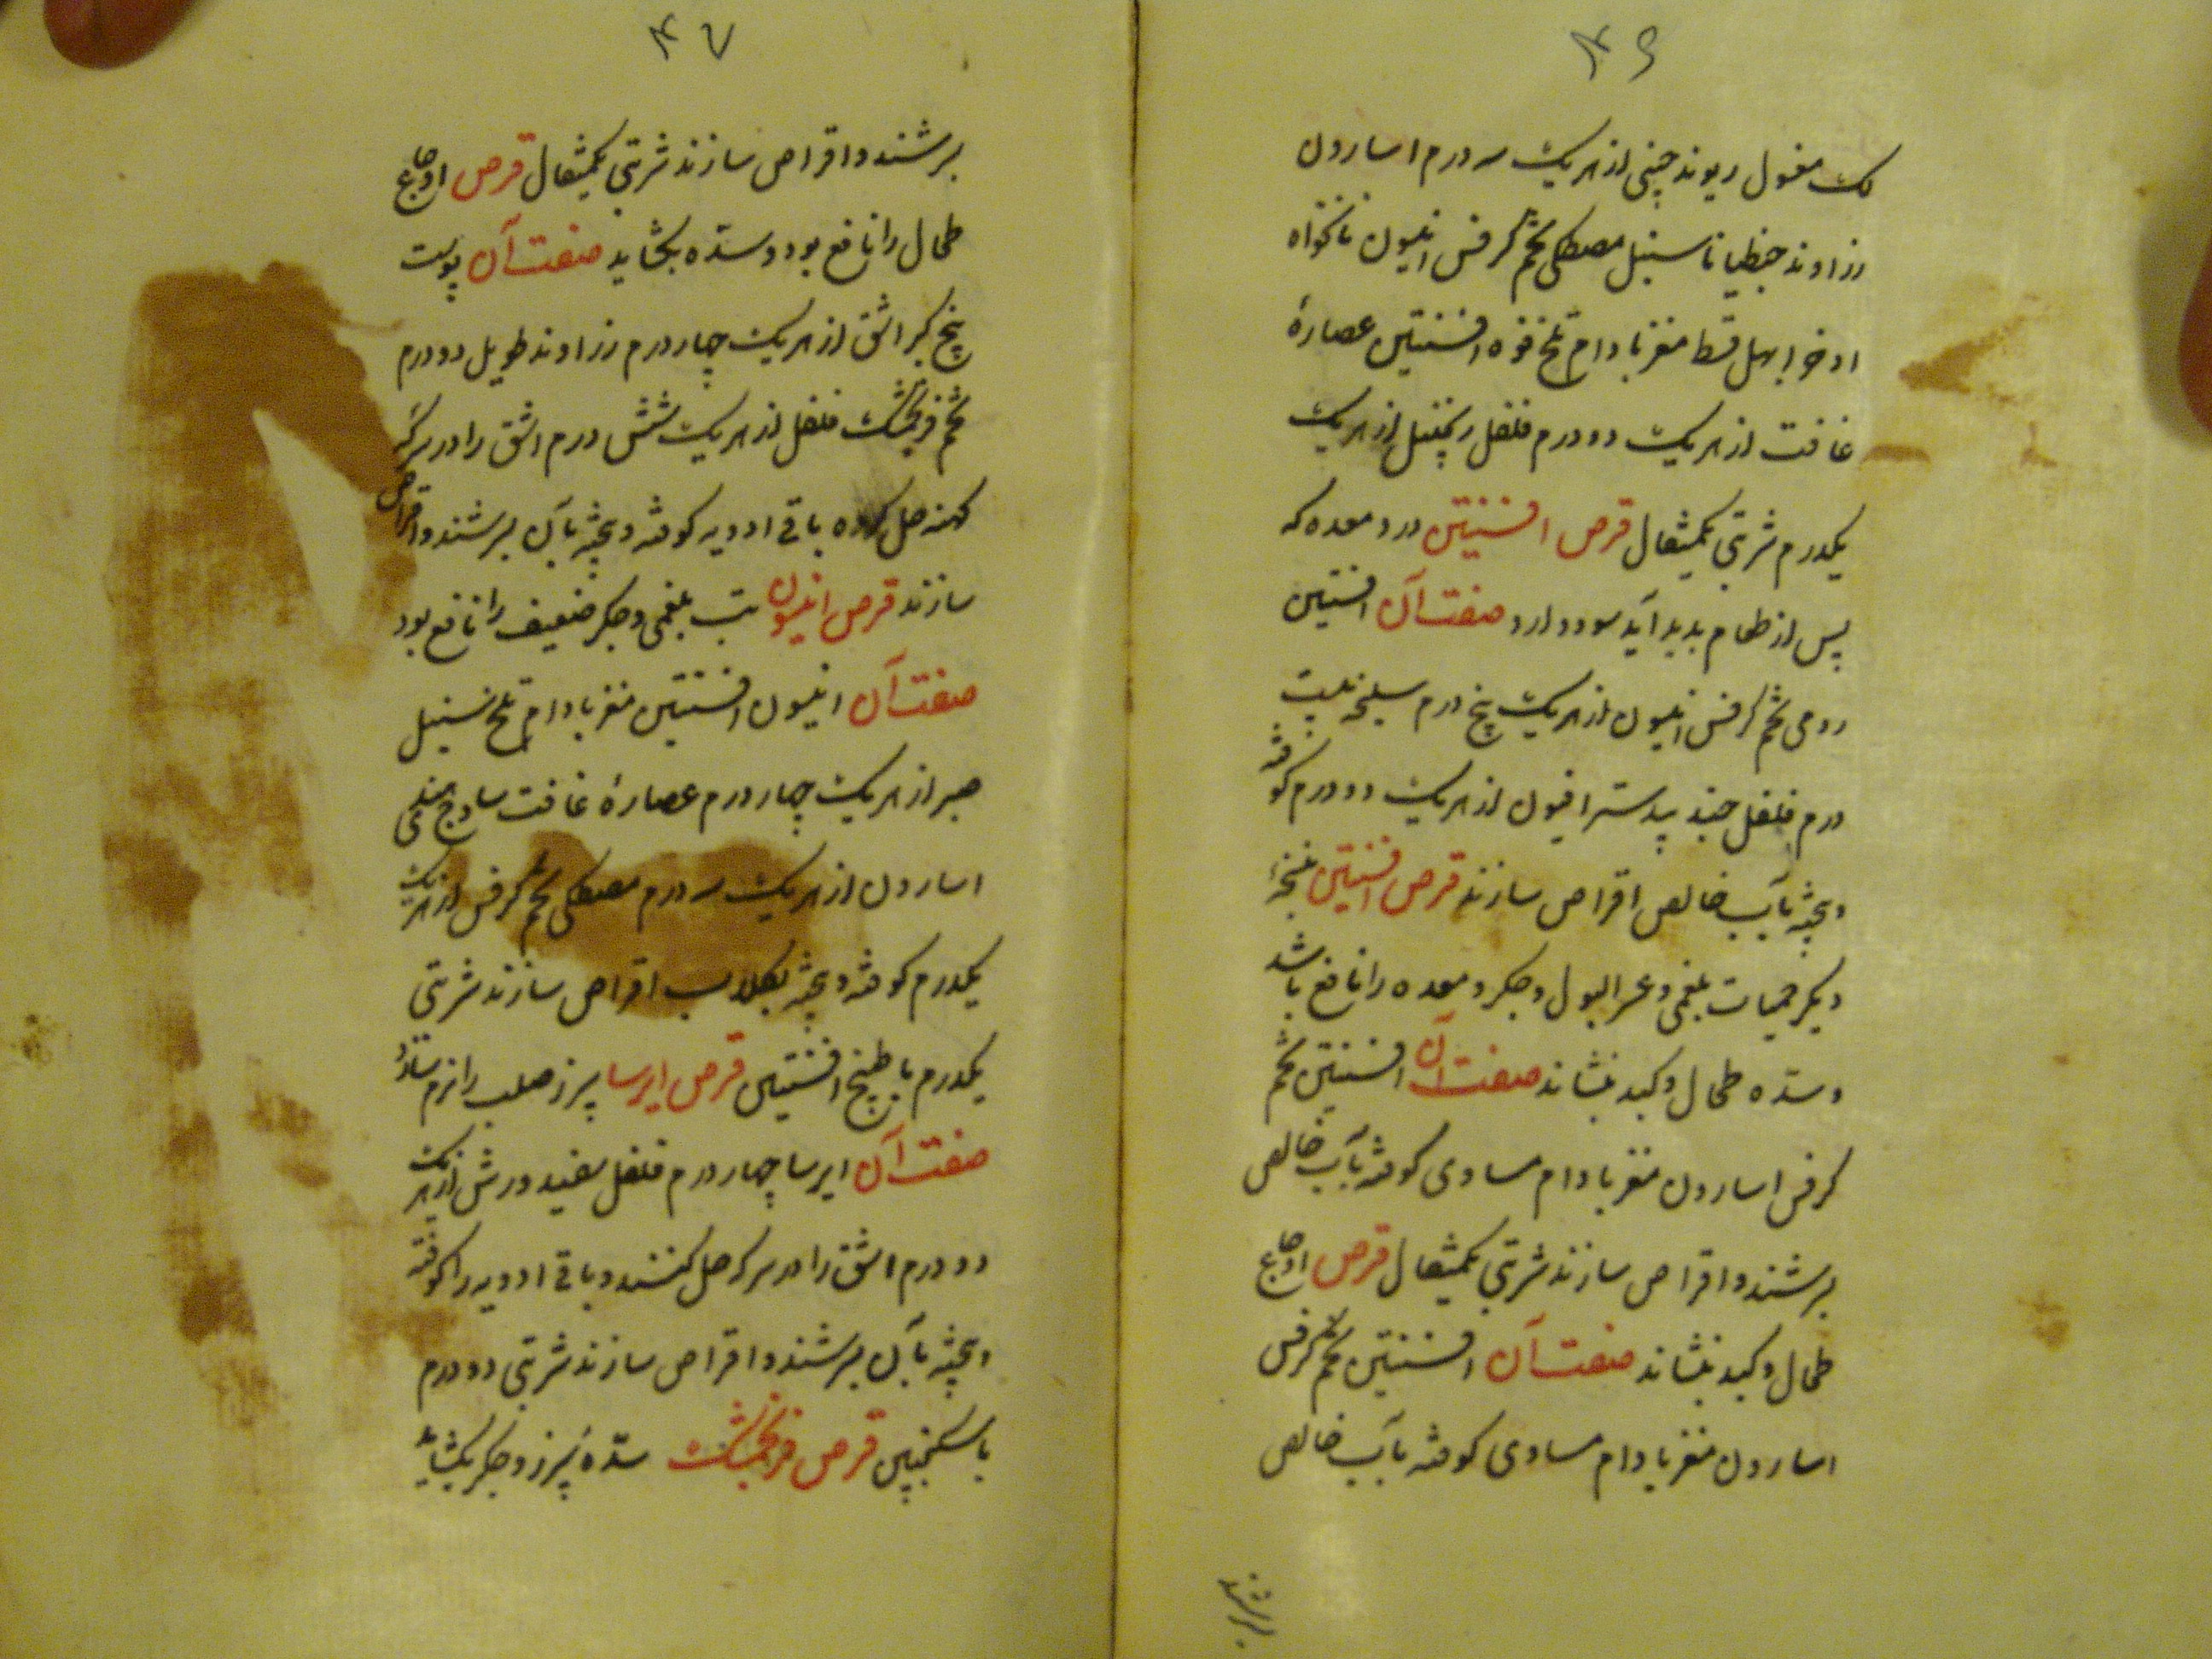 ۴۶
لک مغسول ریوند چینی از هریک سه درم اسارون
زراوند جنطیانا سنبل مصطکی تخم کرفس انیسون نانخواه
اذخر ابهل قسط مغز بادام تلخ فوه افسنتین عصارهٔ
غافت از هریک دو درم فلفل زنجبیل از هریک
یکدرم شربتی یکمثقال قرص افسنتین درد معده که
پس از طعام پدید آید سود دارد صفت آن افسنتین
رومی تخم کرفس انیسون از هریک پنج درم سلیخه بیست
درم فلفل جندبیدستر افیون از هریک دو درم کوفته
و بیخته بآب خالص اقراص سازند قرص افسنتین نسخهٔ
دیگر حمیات بلغمی و عسر البول و جگر و معده را نافع باشد
و سده طحال و کبد بنشاند صفت آن افسنتین تخم
کرفس اسارون مغز بادام مساوی کوفته بآب خالص
برشند و اقراص سازند شربتی یکمثقال قرص اوجاع
طحال و کبد بنشاند صفت آن افسنتین تخم کرفس
اسارون مغز بادام مساوی کوفته بآب خالص
برشند
۴۷
برشند و اقراص سازند شربتی یکمثقال قرص اوجاع
طحال را نافع بود و سده بکشاید صفت آن پوست
بیخ کبر اشق از هریک چهار درم زراوند طویل دو درم
تخم فرنجمشک فلفل از هریک شش درم اشق را در سرکه
کهنه حل کرده باقی ادویه کوفته و بیخته بآن برشند و اقراص
سازند قرص انیسون تب بلغمی و جگر ضعیف را نافع بود
صفت آن انیسون افسنتین مغز بادام تلخ سنبل
صبر از هریک چهار درم عصارهٔ غافت ساذج هندی
اسارون از هریک سه درم مصطکی تخم کرفس از هریک
یکدرم کوفته و بیخته بکلاب اقراص سازند شربتی
یکدرم با طبیخ افسنتین قرص ایرسا سپرز صلب را نرم سازد
صفت آن ایرسا چهار درم فلفل سفید و رش از هریک
دو درم اشق را در سرکه حل کنند و باقی ادویه را کوفته
و بیخته بآن برشند و اقراص سازند شربتی دو درم
با سکنجبین قرص فرنجمشک سده سپرز و جگر بکشاید